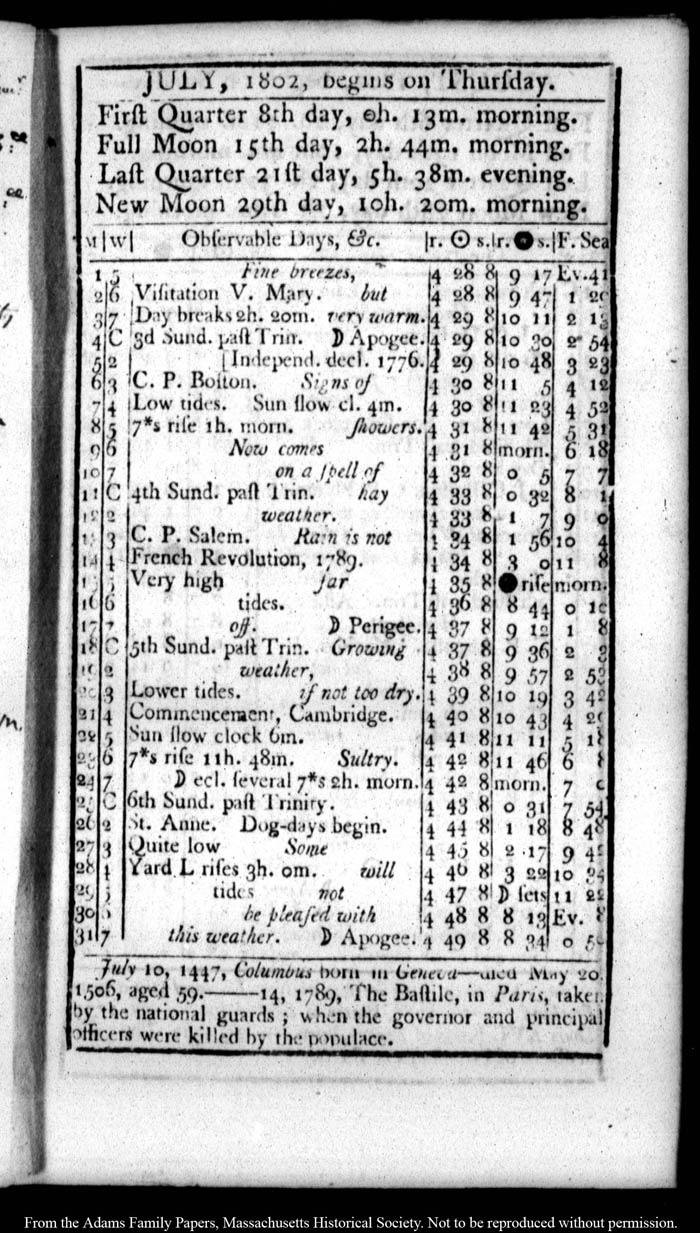 JULY, 1802, begins on Thurſday.
Firſt Quarter 8th day, 0h. 13m. morning.
Full Moon 15th day, 2h. 44m. morning.
Laſt Quarter 21ſt day, 5h. 38m. evening.
New Moon 29th day, 10h. 20m. morning.
M|W| Obſervable Days, &c. |r. ☉ s.|r. ● s.|F. Sea
1 5 Fine breezes, 4 28 8 9 17 Ev. 41
2 6 Viſitation V. Mary. but 4 28 8 9 47 1
3 7 Day breaks 2h. 20m. very warm. 4 29 8 10 11 2 13
4 C 3d Sund. paſt Trin. D Apogee. 4 29 8 10 30 2 54
5 2 [Independ. decl. 1776. 4 29 8 10 48 3 23
6 3 C. P. Boſton. Signs of 4 30 8 11 5 4 12
7 4 Low tides. Sun ſlow cl. 4m. 4 30 8 11 23 4 52
8 5 7*s riſe 1h. morn. ſhowers. 4 31 8 11 42 5 31
9 6 Now comes 4 31 8 morn. 6 18
10 7 on a ſpell of 4 32 8 0 5 7 7
11 C 4th Sund. paſt Trin. hay 4 33 8 0 32 8 1
12 2 weather. 4 33 8 1 7 9 0
13 3 C. P. Salem. Rain is not 4 34 8 1 56 10 4
14 4 French Revolution, 1789. 4 34 8 3 0 11 8
15 5 Very high far 4 35 8 ● riſe morn.
16 6 tides. 4 36 8 8 44 0
17 7 off. D Perigee. 4 37 8 9 12 1 8
18 C 5th Sund. paſt Trin. Growing 4 37 8 9 36 2 3
19 2 weather, 4 38 8 9 57 2 53
20 3 Lower tides. if not too dry. 4 39 8 10 19 3 42
21 4 Commencement, Cambridge. 4 40 8 10 43 4
22 5 Sun ſlow clock 6m. 4 41 8 11 11 5
23 6 7*s riſe 11h. 48m. Sultry. 4 42 8 11 46 6 8
24 7 D ecl. ſeveral 7*s 2h. morn. 4 42 8 morn. 7
25 C 6th Sund. paſt Trinity. 4 43 8 0 31 7 54
26 2 St. Anne. Dog-days begin. 4 44 8 1 18 8 48
27 3 Quite low Some 4 45 8 2 17 9
28 4 Yard L riſes 3h. 0m. will 4 46 8 3 22 10 34
29 5 tides not 4 47 8 D ſets 11 22
30 6 be pleaſed with 4 48 8 8 13 Ev. 8
31 7 this weather. D Apogee. 4 49 8 8 34 0
July 10, 1447, Columbus born in Geneva—died May 20,
1506, aged 59.——14, 1789, The Baſtile, in Paris, taken
by the national guards ; when the governor and principal
officers were killed by the populace.
From the Adams Family Papers, Massachusetts Historical Society. Not to be reproduced without permission.